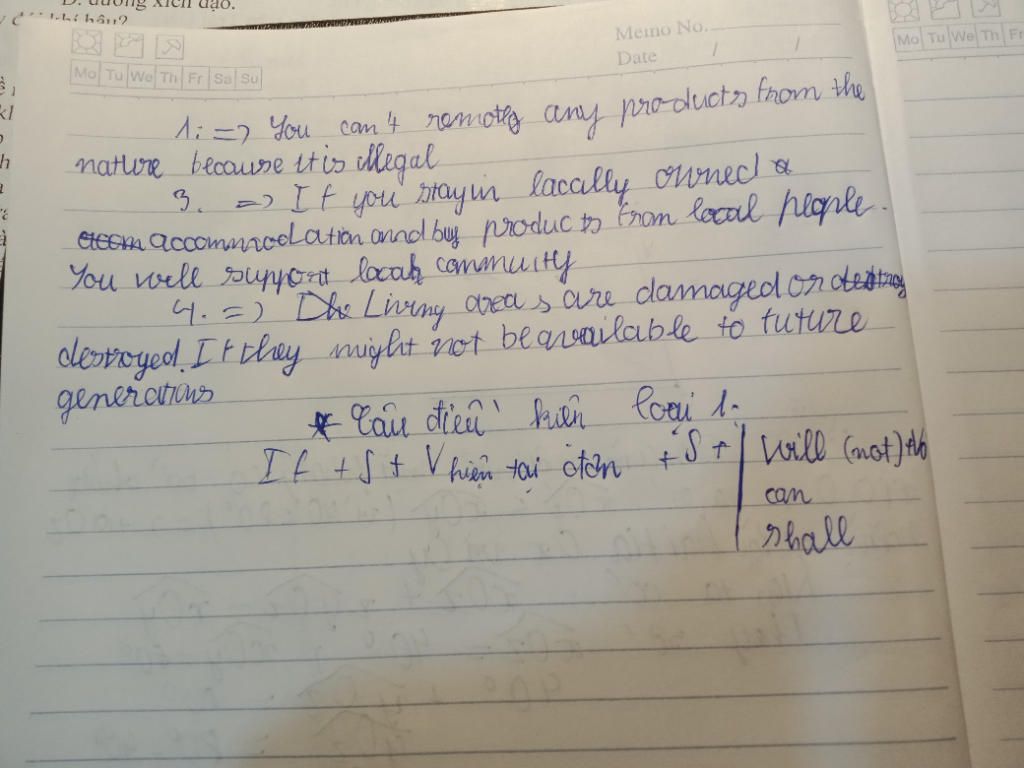 D. đường xích đạo.
khí hậu?
Memo No.
Date / /
Mo Tu We Th Fr Sa Su
Mo Tu We Th Fr
1: => You can't remoteg any products from the
nature because it is illegal
3. => If you stay in lacally owned
accommodation and buy products from local people.
You will support local community
4. => The Living areas are damaged or destroy
destroyed. If they might not be available to future
generations
* Câu điều kiện loại 1.
If + S + V hiện tại đơn + S + will (not) + Vo
can
shall